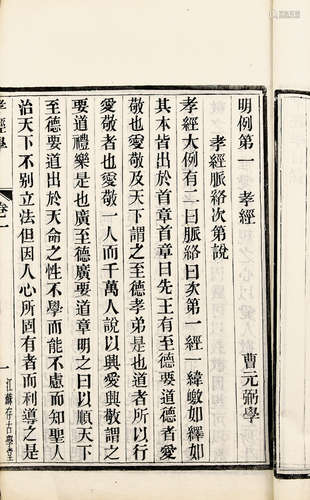 明例第一　孝經
曹元弼學
孝經脈絡次第說
孝經大例有二曰脈絡曰次第一經一緯皦如繹如
其本皆出於首章首章曰先王有至德要道德者愛
敬也愛敬及天下謂之至德孝弟是也道者所以行
愛敬者也愛敬一人而千萬人說以興愛興敬謂之
要道禮樂是也廣至德廣要道章明之曰以順天下
至德要道出於天命之性不學而能不慮而知聖人
治天下不別立法但因人心所固有者而利導之是
孝經學
卷一
一
江蘇存古學堂